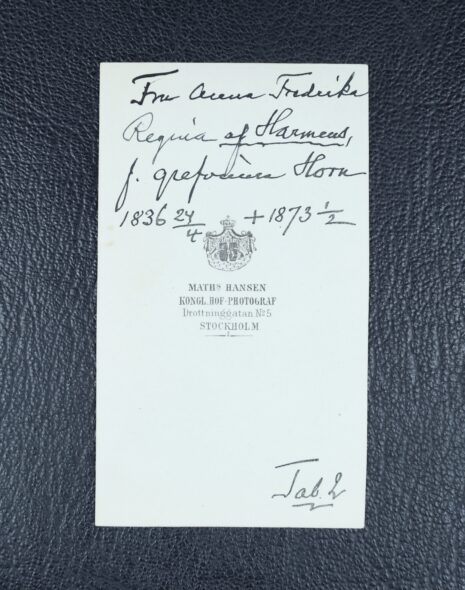 Fru Anna Fredrika
Regina af Harmens,
f. grefvinna Horn
1836 24/4 + 1873 1/2
MATHS HANSEN
KONGL. HOF-PHOTOGRAF
Drottninggatan No 5
STOCKHOLM
Tab. 2